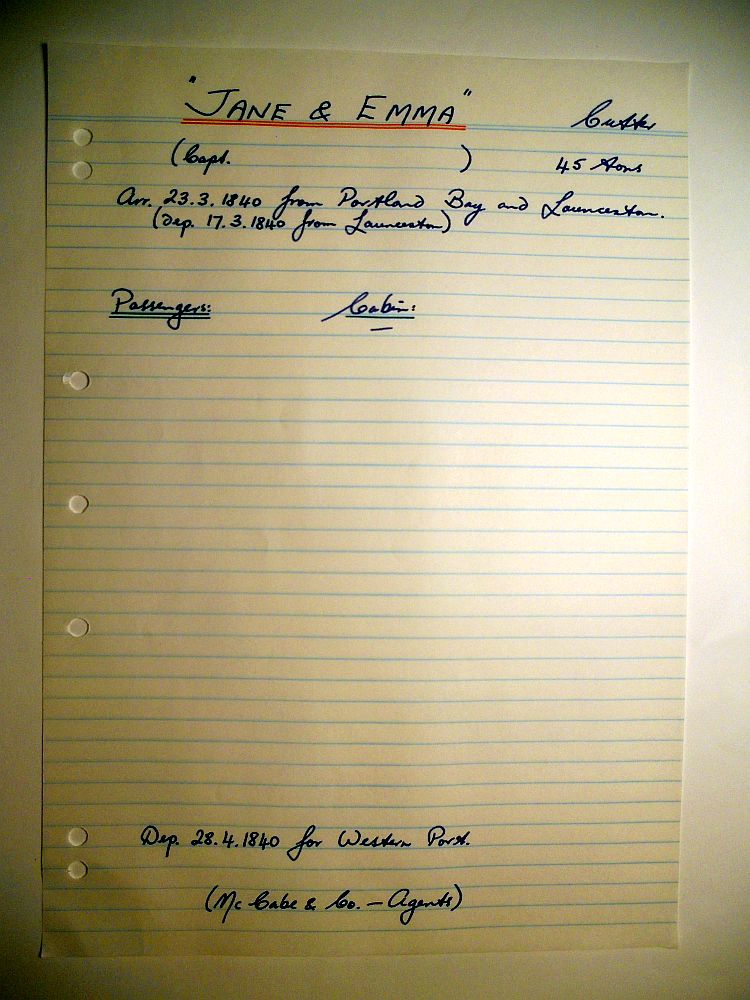 "JANE & EMMA" Cutter
(Capt. ) 45 tons
Arr. 23.3.1840 from Portland Bay and Launceston.
(Dep. 17.3.1840 from Launceston)
Passengers: Cabin:
—
Dep. 28.4.1840 for Western Port.
(McCabe & Co. — Agents)